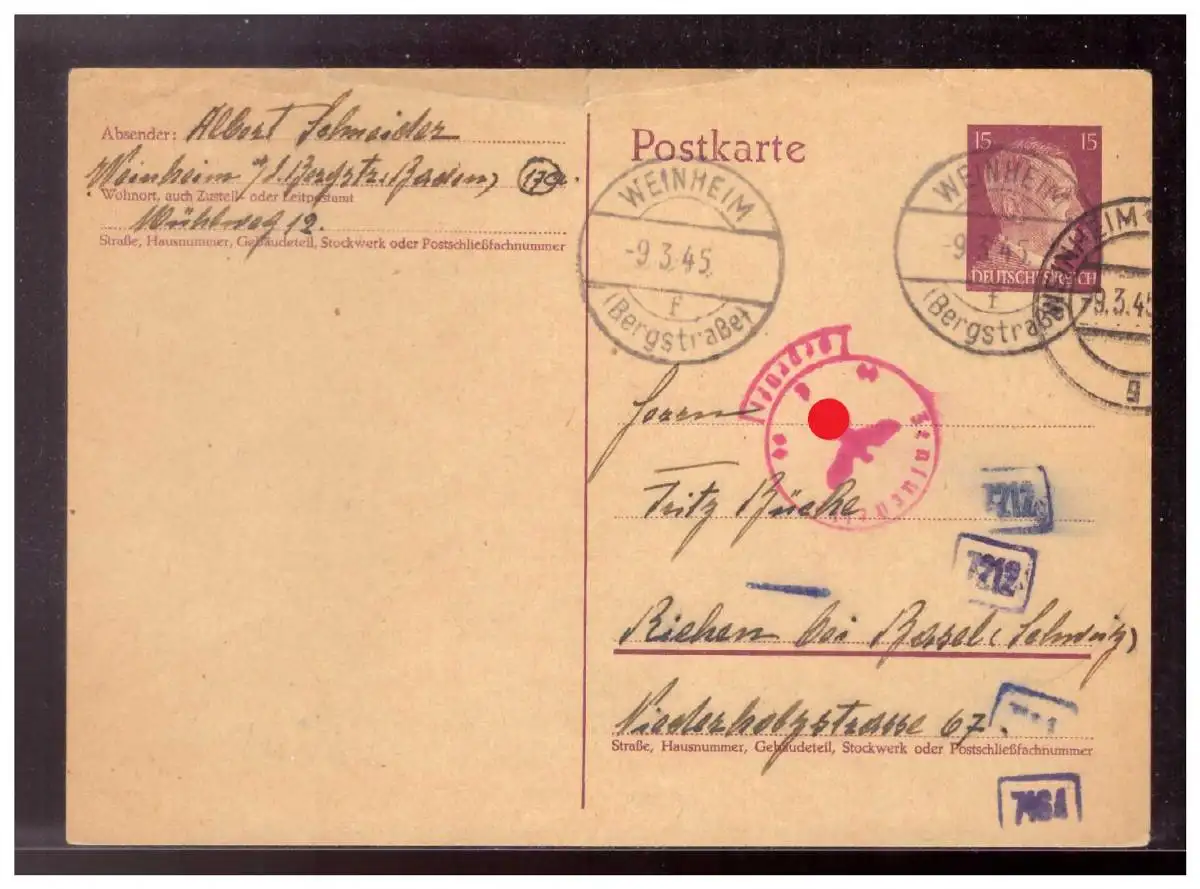 Absender: Albert Schneider
Weinheim a/d. Bergstr. Baden, 17a
Wohnort, auch Zustell- oder Leitpostamt
Mühlweg 12.
Straße, Hausnummer, Gebäudeteil, Stockwerk oder Postschließfachnummer
Postkarte
15 15
DEUTSCHES REICH
WEINHEIM
-9.3.45.
f
(Bergstraße)
WEINHEIM
-9.3.45.
f
(Bergstraße)
WEINHEIM
-9.3.45
g
Herrn
Fritz Büche
7212
7212
Riehen bei Basel (Schweiz)
Niederholzstrasse 67.
Straße, Hausnummer, Gebäudeteil, Stockwerk oder Postschließfachnummer
7464